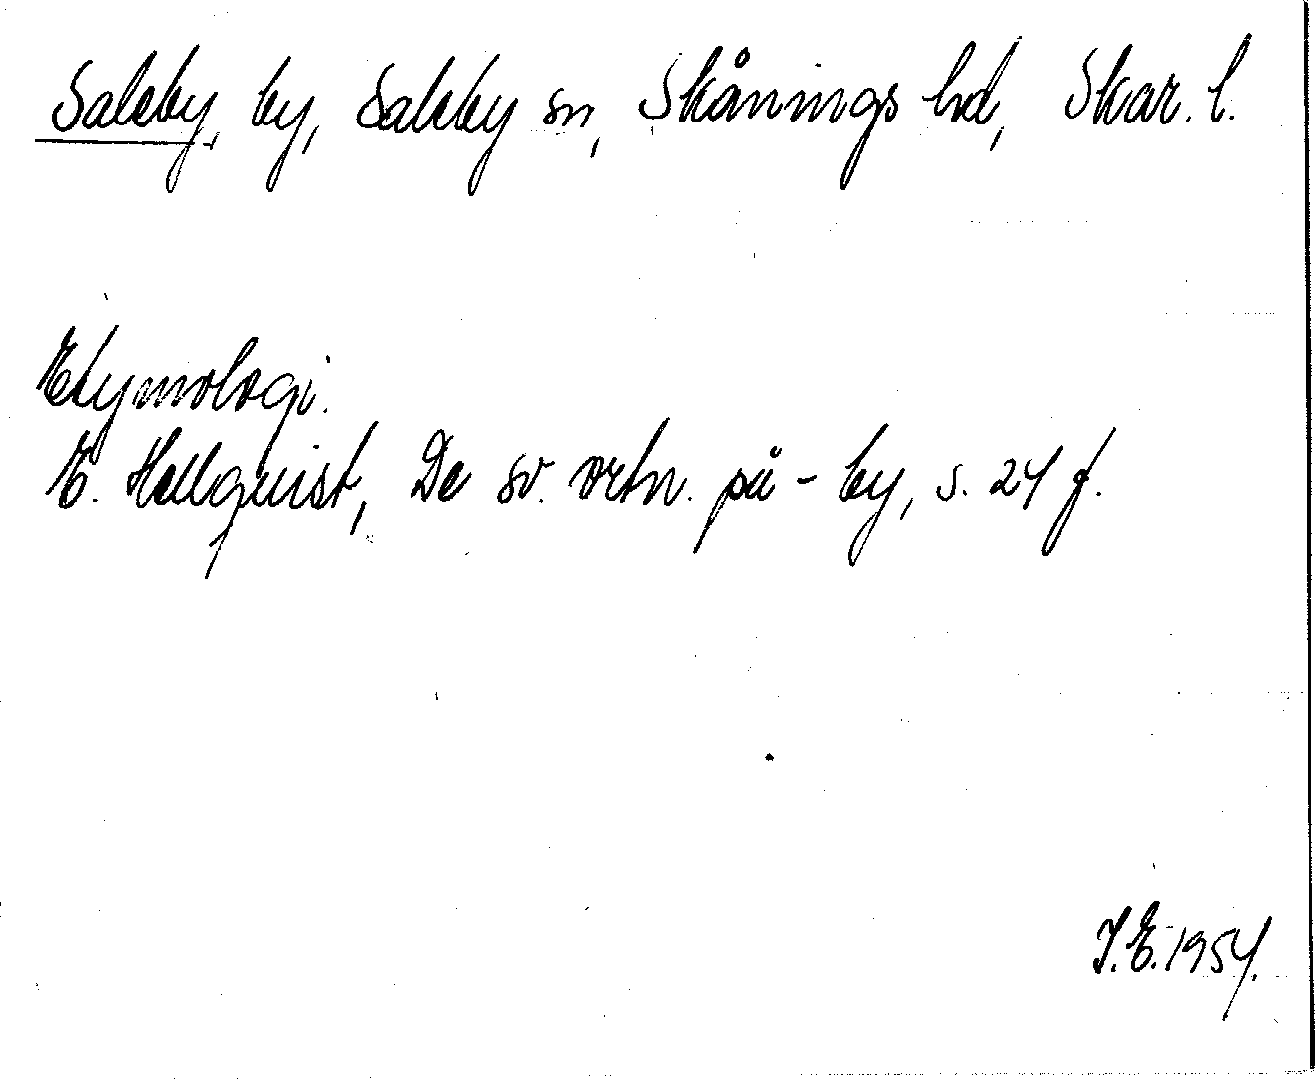 Saleby, by, Saleby sn, Skånings hd, Skar. l.
Etymologi.
E. Hellquist, De sv. ortn. på - by, s. 24 f.
I. E. 1954.